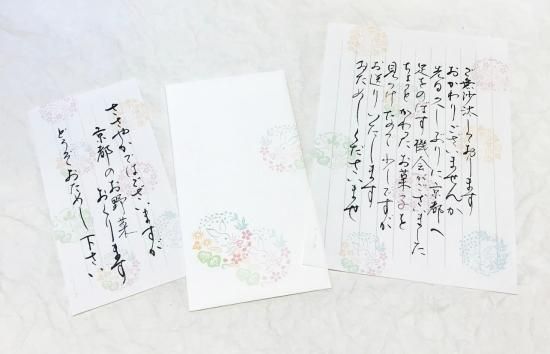 ご無沙汰しております
おかわりございませんか
先日久しぶりに京都へ
足をのばす機会がございました
ちょっとかわったお菓子を
見つけたので少しですが
お送りいたします
おためしくださいませ
ささやかではございますが
京都のお野菜
おくります
どうぞおためし下さい